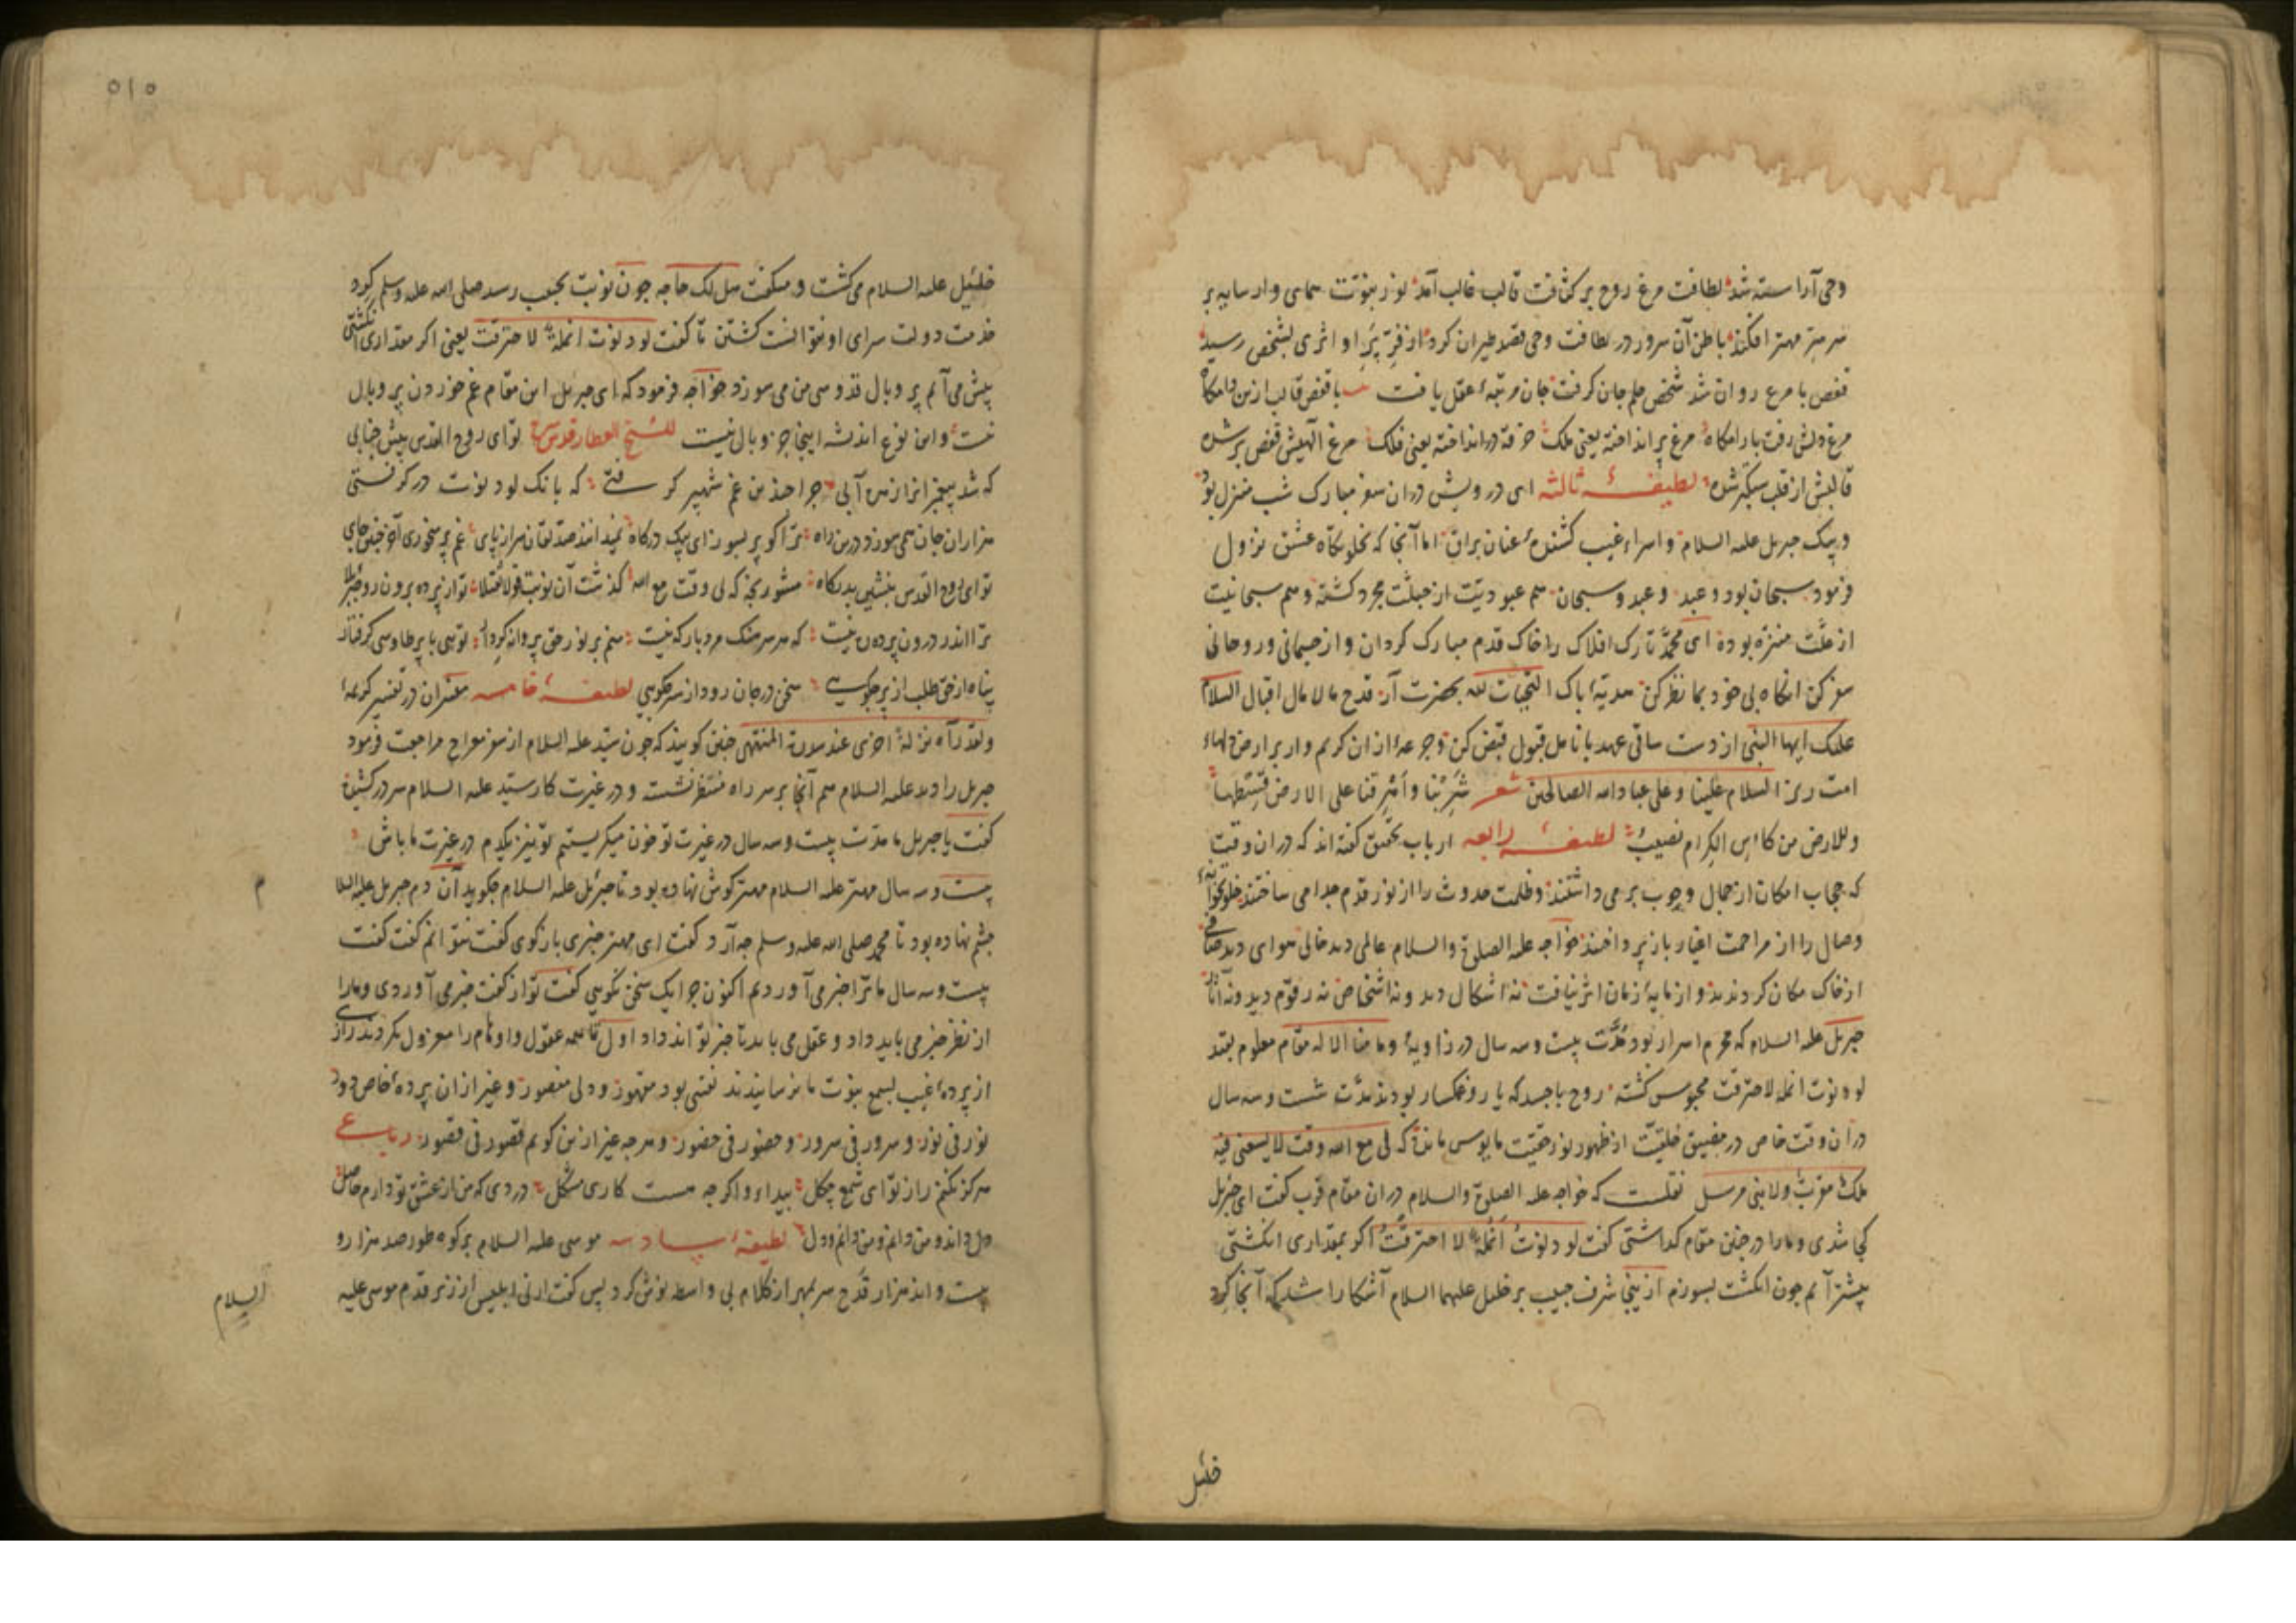 وحی آراسته شد لطافت مرغ روح بر کثافت قالب غالب آمد نور نبوّت همای وار سایه بر
سر مهتر افکند باطن آن سرور در لطافت وحی قصد طیران کرد از فرّ پر او اثری بشخص رسید
قفص با مرغ روان شد شخص حکم جان گرفت جان مرتبهٔ عقل یافت با قفص قالب ازین دامگاه
مرغ دلش رفت بارامگاه مرغ پر انداخته یعنی ملک خرقه در انداخته یعنی فلک مرغ آلهیش قفص پر شده
قالبش از قلب سبکتر شده لطیفهٔ ثالثه ای درویش دران سفر مبارک شب منزل بود
و پیک جبریل علیه السلام و اسراء غیب کشندهٔ عنان براق اما آنجا که بخلوتگاه عشق نزول
فرمود سبحان بود و عبد و عبد و سبحان هم عبودیّت از جبلّت مجرد گشته و هم سبحانیت
از علّت منزه بوده ای محمّد تارک افلاک را خاک قدم مبارک گردان و از جسمانی و روحانی
سفر کن انگاه بی خود بما نظر کن هدیهٔ پاک التحیات لله بحضرت آر قدح مالامال اقبال السلام
علیک ایها النبی از دست ساقی عهد بانامل قبول قبض کن و جرعهٔ ازان کریم وار بر ارض دلهاء
امت ریز السلام علینا و علی عباد الله الصالحین شعر شَرِبْنا وأَهْرقنا علی الارض قِسطها
وللارض من کاس الکرام نصیبُ لطیفهٔ رابعه ارباب تحقیق گفته اند که دران وقت
که حجاب امکان از جمال وجوب برمی داشتند و ظلمت حدوث را از نور قدم جدا می ساختند خلوتخانهٔ
وصال را از مزاحمت اغیار باز پرداختند خواجه علیه الصلوة والسلام عالمی دید خالی هوای دید صافی
از خاک مکان گرد ندید و از مایهٔ زمان اثر نیافت نه اشکال دید و نه اشخاص نه رقوم دید و نه آثار
جبریل علیه السلام که محرم اسرار بود مُدّت بیست و سه سال در زاویهٔ وما منا الا له مقام معلوم بقید
لو دنوت انملة لاحترقت محبوس گشته روح با جسد که یار و غمگسار بودند مدّت شست و سه سال
دران وقت خاص در مضیق خلقیّت از ظهور نور حقیّت مایوس ماند که لی مع الله وقت لا یسعنی فیه
ملک مقرب ولا نبی مرسل نقلست که خواجه علیه الصلوة والسلام دران مقام قرب گفت ای جبریل
کجا شدی و مارا در چنین مقام گذاشتی گفت لو دنوتُ اَنمُلةً لا احترقتُ اگر بمقداری انگشتی
پیشتر آیم چون انگشت بسوزم ازینجا شرف حبیب بر خلیل علیهما السلام آشکارا شد که آنجا گرد
خلیل
٥١٥
خلیل علیه السلام می گشت و میگفت هل لک حاجه چون نوبت بحبیب رسید صلی الله علیه وسلم گرد
خدمت دولت سرای او نتوانست گشتن تا گفت لو دنوت انملةً لا حترقت یعنی اگر مقداری انگشتی
پیش می آیم پر و بال قدوسی من می سوزد خواجه فرمود که ای جبریل این مقام غم خوردن پر و بال
نیست و این نوع اندیشه اینجا جز وبال نیست للشیخ العطار قدس سره تو ای روح القدس پیش جنابی
که شد پیغمبرانرا زهره آبی چرا چندین غم شهپر گرفتی که بانگ لو دنوت درگرفتی
هزاران جان همی سوزد درین راه ترا گو پر بسوز ای پیک درگاه غم پر میخوری آخر چنین جای
تو ای روح القدس بنشین بدرگاه مشو رنجه که لی وقت مع الله گذشت آن نوبت قولا ثقیلا تو از پرده برون رو جبرئیلا
ترا اندر درون پرده ره نیست که هر سرهنگ مرد بارگه نیست منم بر نور حق پروانه کردار تویی با پر طاوسی گرفتار
پناه از حق طلب از پر چگویی سخن در جان رود از سر چگویی لطیفهٔ خامسه مفسران در تفسیر کریمهٔ
ولقد رآه نزلة اخری عند سدرة المنتهی چنین گویند که چون سیّد علیه السلام از سفر معراج مراجعت فرمود
جبریل را دید علیه السلام هم آنجا بر سر راه منتظر نشسته و در غیرت کار سیّد علیه السلام سر در کشیده
گفت یا جبریل ما مدّت بیست و سه سال در غیرت تو خون میگریستیم تو نیز یکدم در غیرت ما باش
بیست و سه سال مهتر علیه السلام مهتر گوش نهاده بود تا جبرئیل علیه السلام چگوید آن دم جبریل علیه السلا
م
چشم نهاده بود تا محمد صلی الله علیه وسلم چه آرد گفت ای مهتر خبری بازگوی گفت نتوانم گفت گفت
بیست و سه سال ما ترا خبر می آوردیم اکنون چرا یک سخن نگویی گفت تو از گفت خبر می آوردی و مارا
از نظر خبر می باید داد و عقل می باید تا خبر تواند داد اول تا همه عقول و اوهام را معزول نکردند رازی
از پرده غیب بسمع نبوّت ما نرسانیدند نفسی بود مقهور و دلی منصور و غیر ازان پردهٔ خاص دور
نور فی نور و سرور فی سرور و حضور فی حضور و هر چه غیر ازین گویم قصور فی قصور رباعی
هرگز نکنم راز تو ای شمع چگل پیدا و اگرچه هست کاری مشکل دردی که من از عشق تو دارم حاصل
دل داند و من دانم و من دانم و دل لطیفهٔ سادسه موسی علیه السلام بر کوه طور صد هزار و
بیست و اند هزار قدح سر بمهر از کلام بی واسطه نوش کرد پس گفت ارنی ابلیس از زیر قدم موسی علیه
السلام